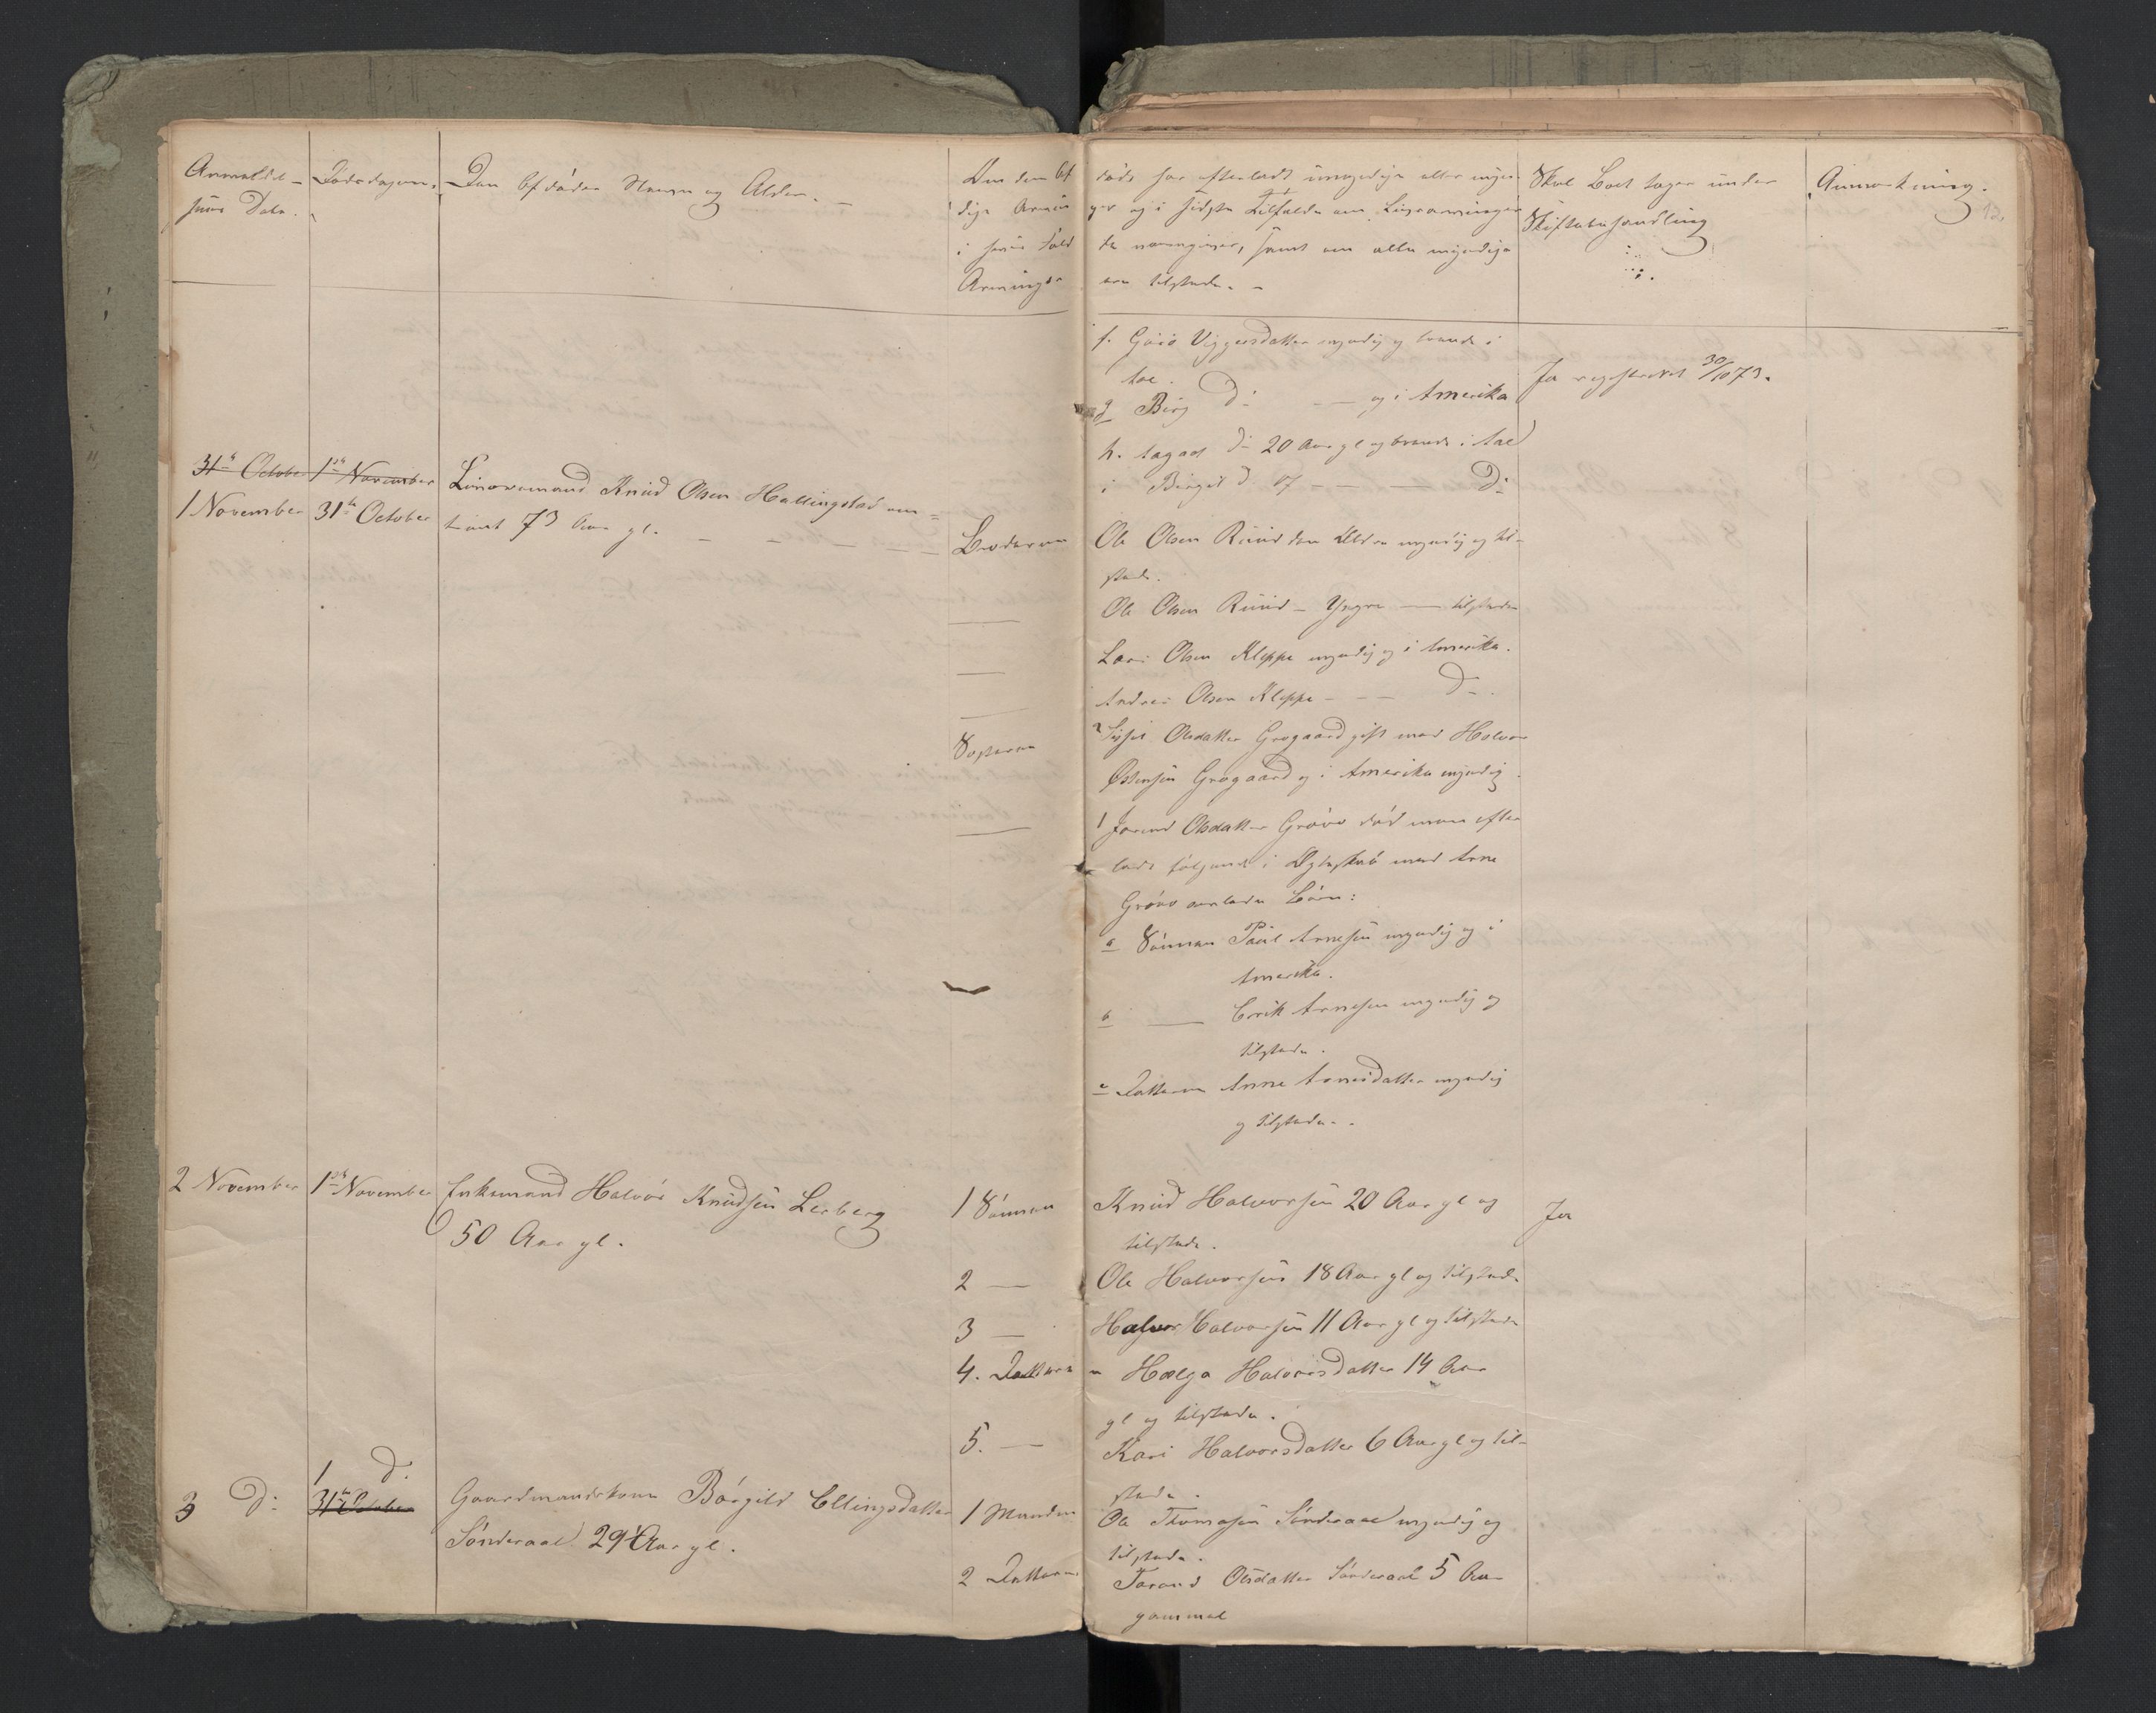 Anmeldel-
sens Dato.
Dødsdagen.
Den Afdødes Navn og Alder.
Om den Af
døde har efterladt umyndige eller myn-
dige Arvin
ger og i sidste Tilfælde om Livsarvinger
i hvis Fald
de navngives, samt om alle myndige
Arvinger
ere tilstede.
Skal Boet tages under
Skiftebehandling
Anmærkning.
12.
f. Guri Viggersdatter myndig og boende i
Aal.
g Birg Do — og i Amerika
Ja registreret 30/10 73.
h. Aagaat Do 20 Aar gl og boende i Aal
i Birgit D 17 — — — Do
31te October
1ste November
1 November
31te October
Livøremand Knud Olsen Hallingstad om-
trent 73 Aar gl.
Broderen
Ole Olsen Ruud den Ældre myndig og til-
stede.
— Ole Olsen Ruud – Yngre — tilstede
— Lars Olsen Kleppe myndig og i Amerika.
— Andres Olsen Kleppe — — Do.
Søsteren
Sissel Olsdatter Grøgaard gift med Halvor
Østensen Grøgaard og i Amerika myndig
— Jorund Olsdatter Grøvo død men efter
lade følgende i Ægteskab med Arne
Grøvo avlede Børn:
a Sønnen Paul Arnesen myndig og i
Amerika.
b — Erik Arnesen myndig og
tilstede.
c Datteren Anne Arnesdatter myndig
og tilstede.
2 November
1ste November
Enkemand Halvor Knudsen Lerberg
50 Aar gl.
1 Sønnen
Knud Halvorsen 20 Aar gl og
tilstede.
Ja
2 — Ole Halvorsen 18 Aar gl og tilstede
3 — Halvor Halvorsen 11 Aar gl og tilstede
4. Datteren Helga Halvorsdatter 14 Aar
gl og tilstede.
5. — Kari Halvorsdatter 6 Aar gl og til-
stede.
3 Do
1 d.
31te October
Gaardmandskone Børgild Ellingsdatter
Sønderaal 29 Aar gl.
1 Manden
Ole Thomasen Sønderaal myndig og
tilstede.
2 Datteren
Torand Olsdatter Sønderaal 5 Aar
gammel